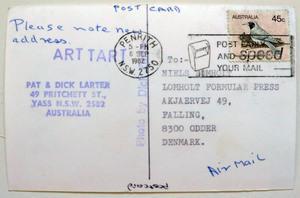 POST CARD
Please note new
address.
ART TART
PAT & DICK LARTER
49 PRITCHETT ST.,
YASS N.S.W. 2582
AUSTRALIA
Photo by Dic
PENRITH
5 - PM
1982
N.S.W. 2750
AUSTRALIA 45c
POST EARLY
AND speed
YOUR MAIL
To:-
NIELS LOMHOLT
LOMHOLT FORMULAR PRESS
AKJAERVEJ 49,
FALLING,
8300 ODDER
DENMARK.
Air Mail